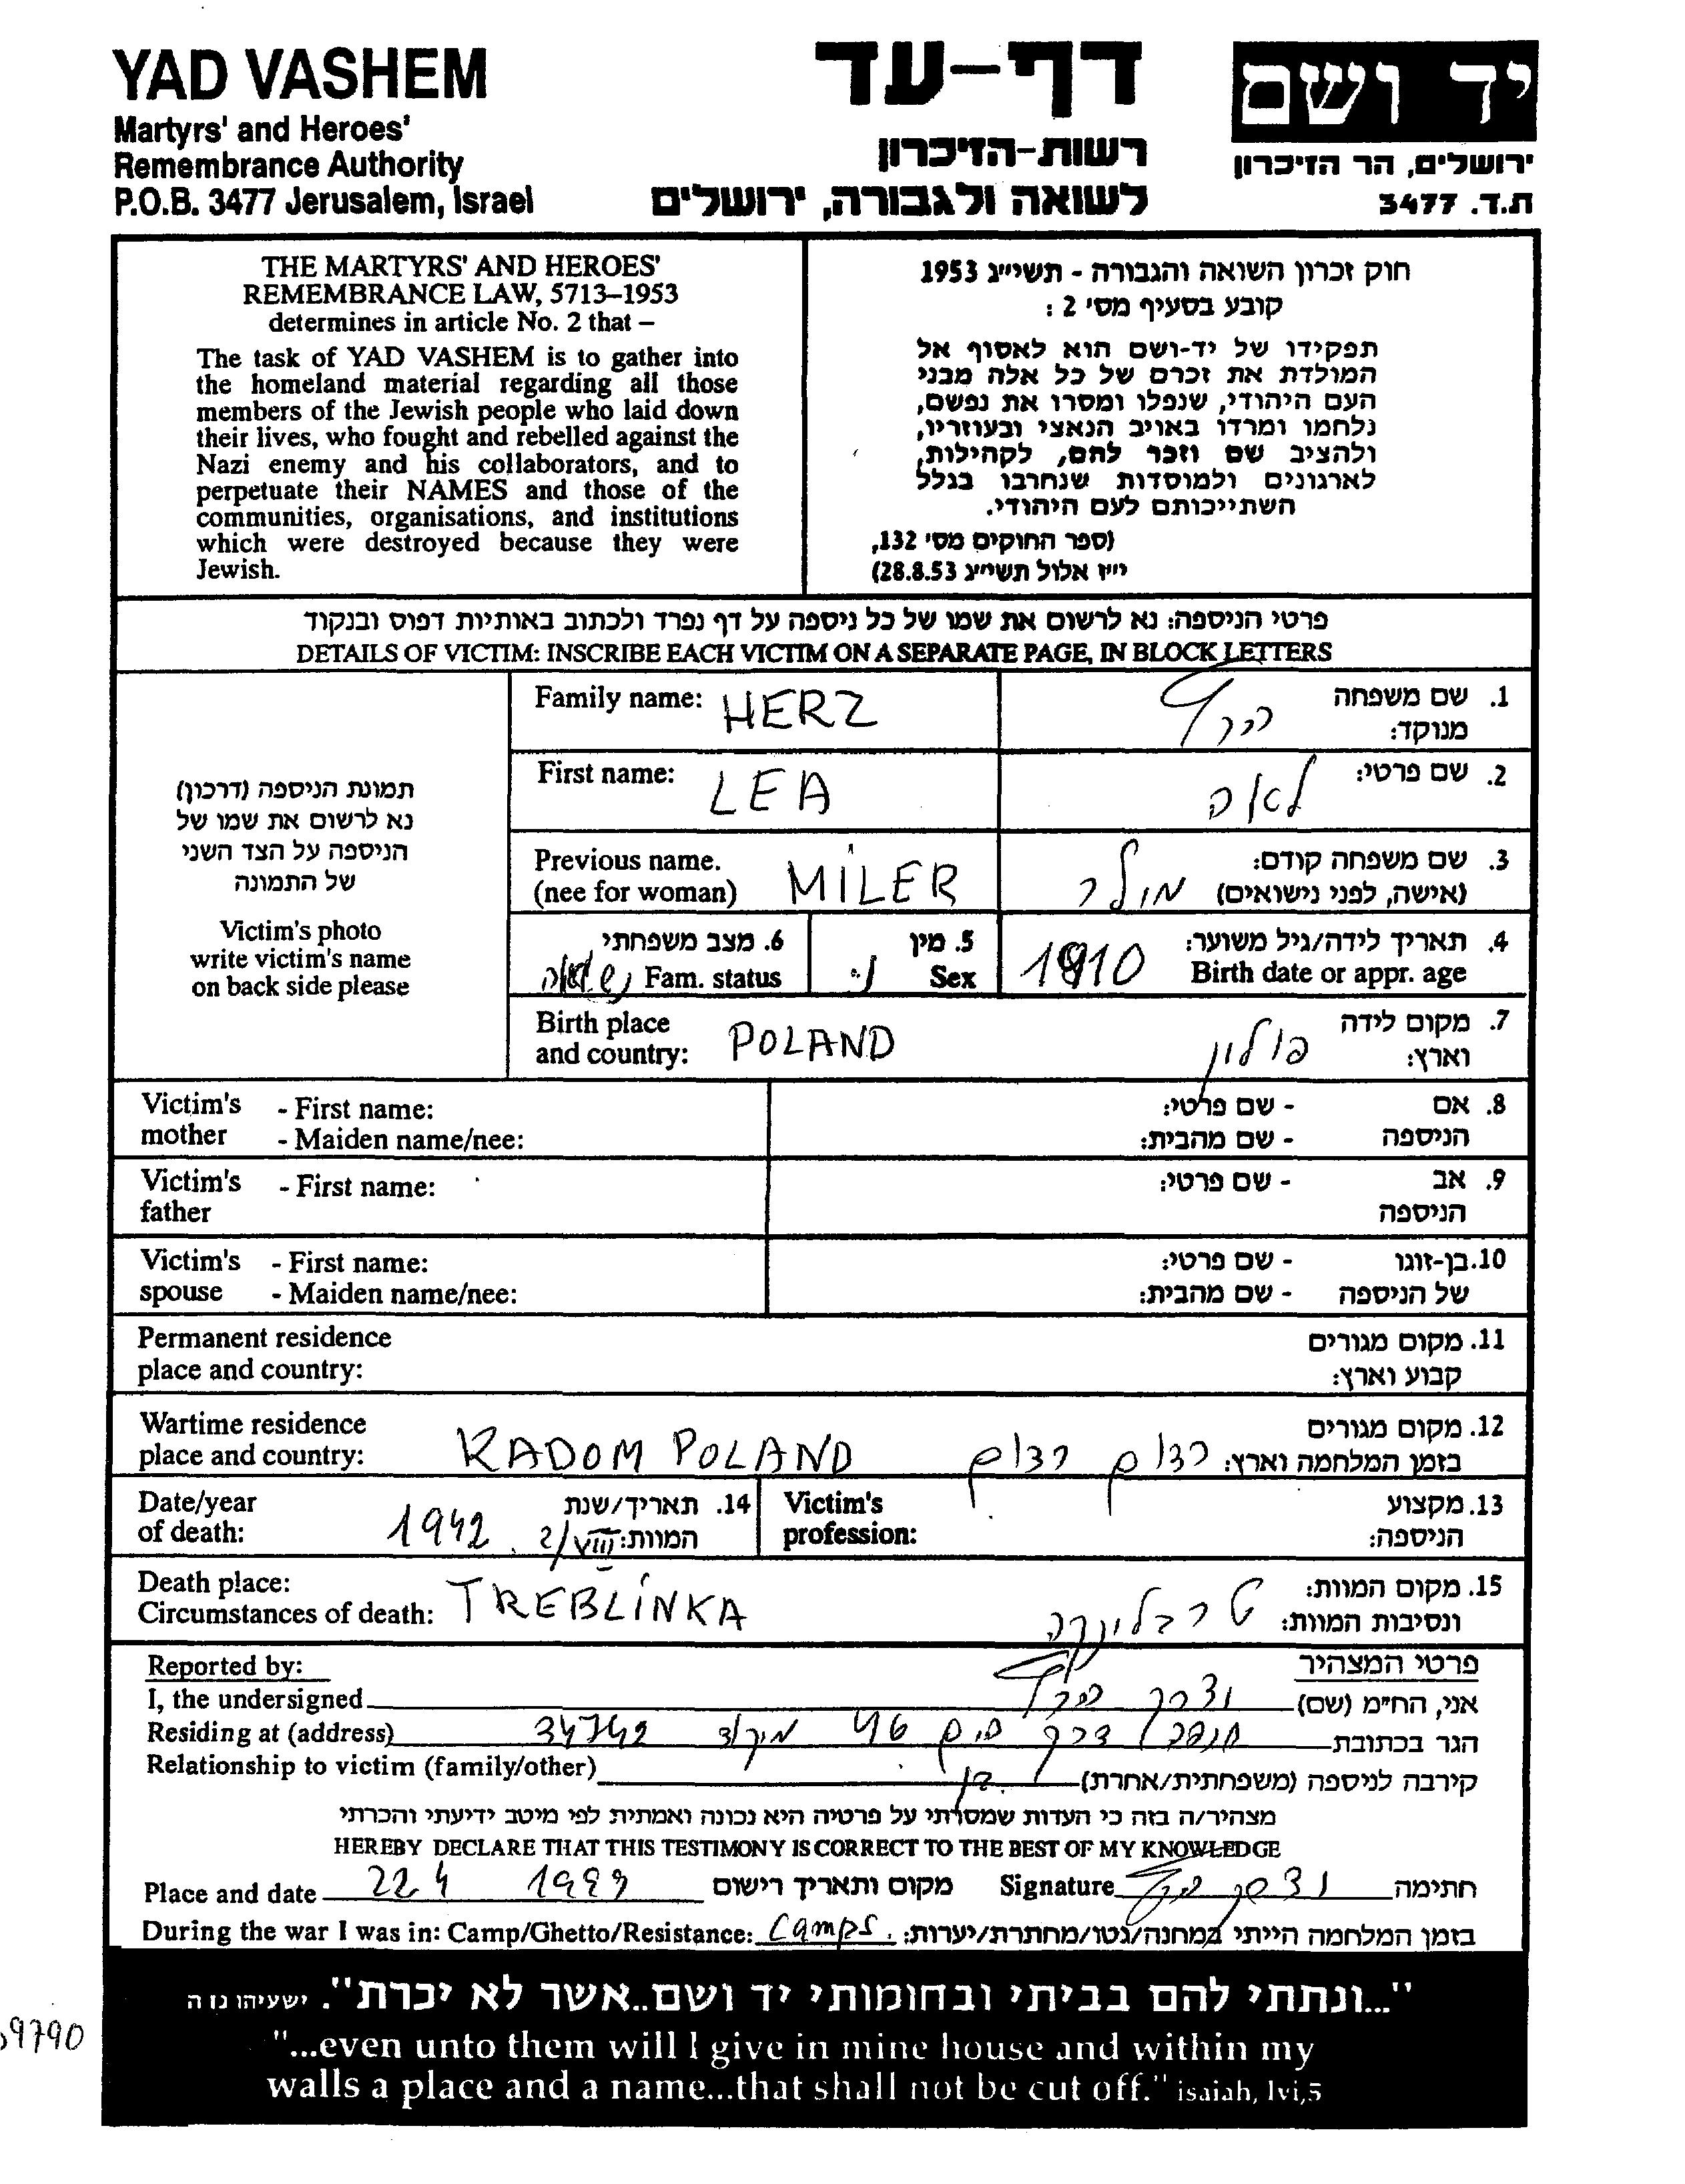 YAD VASHEM
Martyrs' and Heroes'
Remembrance Authority
P.O.B. 3477 Jerusalem, Israel
דף-עד
רשות-הזיכרון
לשואה ולגבורה, ירושלים
יד ושם
ירושלים, הר הזיכרון
ת.ד. 3477
THE MARTYRS' AND HEROES'
REMEMBRANCE LAW, 5713–1953
determines in article No. 2 that –
The task of YAD VASHEM is to gather into
the homeland material regarding all those
members of the Jewish people who laid down
their lives, who fought and rebelled against the
Nazi enemy and his collaborators, and to
perpetuate their NAMES and those of the
communities, organisations, and institutions
which were destroyed because they were
Jewish.
חוק זכרון השואה והגבורה - תשי״ג 1953
קובע בסעיף מס׳ 2 :
תפקידו של יד-ושם הוא לאסוף אל
המולדת את זכרם של כל אלה מבני
העם היהודי, שנפלו ומסרו את נפשם,
נלחמו ומרדו באויב הנאצי ובעוזריו,
ולהציב שם וזכר להם, לקהילות,
לארגונים ולמוסדות שנחרבו בגלל
השתייכותם לעם היהודי.
(ספר החוקים מס׳ 132,
י״ז אלול תשי״ג 28.8.53)
פרטי הניספה: נא לרשום את שמו של כל ניספה על דף נפרד ולכתוב באותיות דפוס ובנקוד
DETAILS OF VICTIM: INSCRIBE EACH VICTIM ON A SEPARATE PAGE, IN BLOCK LETTERS
תמונת הניספה (דרכון)
נא לרשום את שמו של
הניספה על הצד השני
של התמונה
Victim's photo
write victim's name
on back side please
Family name: HERZ
1. שם משפחה
מנוקד: הרץ
First name: LEA
2. שם פרטי: לאה
Previous name.
(nee for woman) MILER
3. שם משפחה קודם:
(אישה, לפני נישואים) מילר
6. מצב משפחתי
Fam. status נשואה
5. מין
Sex נ
4. תאריך לידה/גיל משוער:
Birth date or appr. age 1910
Birth place
and country: POLAND
7. מקום לידה
וארץ: פולין
Victim's mother - First name:
- Maiden name/nee:
8. אם הניספה - שם פרטי:
- שם מהבית:
Victim's father - First name:
9. אב הניספה - שם פרטי:
Victim's spouse - First name:
- Maiden name/nee:
10. בן-זוגו של הניספה - שם פרטי:
- שם מהבית:
Permanent residence
place and country:
11. מקום מגורים
קבוע וארץ:
Wartime residence
place and country: RADOM POLAND
12. מקום מגורים
בזמן המלחמה וארץ: רדום רדום
Date/year
of death: 1942
14. תאריך/שנת
המוות: 2/VIII
Victim's
profession:
13. מקצוע
הניספה:
Death place:
Circumstances of death: TREBLINKA
15. מקום המוות:
ונסיבות המוות: טרבלינקה
Reported by:
פרטי המצהיר
I, the undersigned
אני, הח״מ (שם) הרץ
Residing at (address)
הגר בכתובת חיפה דרך הים 46 מיקוד 34742
Relationship to victim (family/other)
קירבה לניספה (משפחתית/אחרת) בן
מצהיר/ה בזה כי העדות שמסרתי על פרטיה היא נכונה ואמתית לפי מיטב ידיעתי והכרתי
HEREBY DECLARE THAT THIS TESTIMONY IS CORRECT TO THE BEST OF MY KNOWLEDGE
Place and date 22 4
מקום ותאריך רישום
Signature
חתימה
During the war I was in: Camp/Ghetto/Resistance: Camps.
בזמן המלחמה הייתי במחנה/גטו/מחתרת/יערות:
"...ונתתי להם בביתי ובחומותי יד ושם..אשר לא יכרת". ישעיהו נו ה
"...even unto them will I give in mine house and within my
walls a place and a name...that shall not be cut off." isaiah, lvi,5
9790